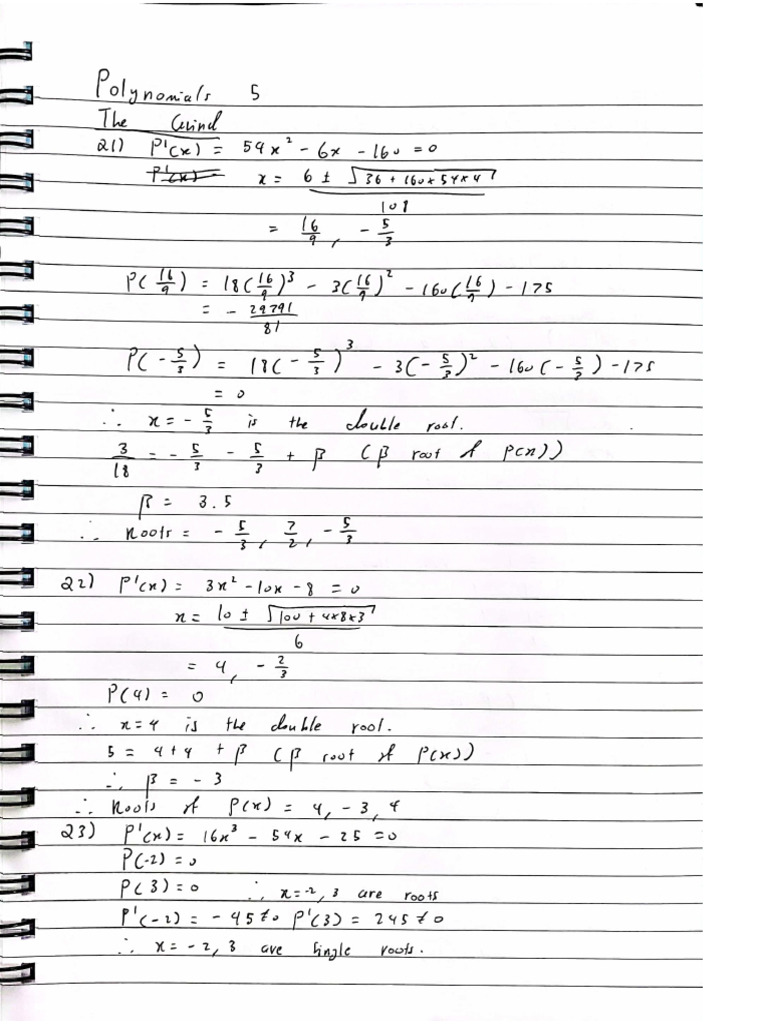 Polynomials 5
The Grind
21) P'(x) = 54x² - 6x - 160 = 0
x = 6 ± √36 + 160 x 54 x 4
108
= 16/9, - 5/3
P(16/9) = 18(16/9)³ - 3(16/9)² - 160(16/9) - 175
= - 29791/81
P(-5/3) = 18(-5/3)³ - 3(-5/3)² - 160(-5/3) - 175
= 0
∴ x = -5/3 is the double root.
3/18 = -5/3 - 5/3 + β (β root of P(x))
β = 3.5
∴ Roots = -5/3, 7/2, -5/3
22) P'(x) = 3x² - 10x - 8 = 0
x = 10 ± √100 + 4x8x3
6
= 4, -2/3
P(4) = 0
∴ x=4 is the double root.
5 = 4+4 + β (β root of P(x))
∴ β = -3
∴ Roots of P(x) = 4, -3, 4
23) P'(x) = 16x³ - 54x - 25 = 0
P(-2) = 0
P(3) = 0 ∴ x=-2, 3 are roots
P'(-2) = -45 ≠ 0 P'(3) = 245 ≠ 0
∴ x = -2, 3 are single roots.